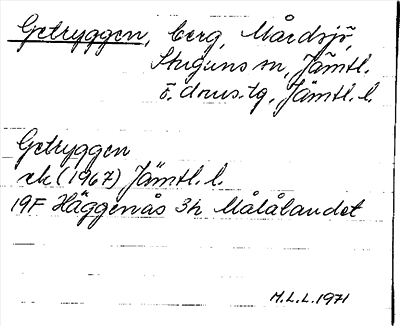 Getryggen, berg, Mårdsjö,
Stuguns sn, Jämtl.
ö. doms.tg, Jämtl. l.
Getryggen
ek (1967) Jämtl. l.
19F Häggenås 3h Målålandet
M.L.L. 1971